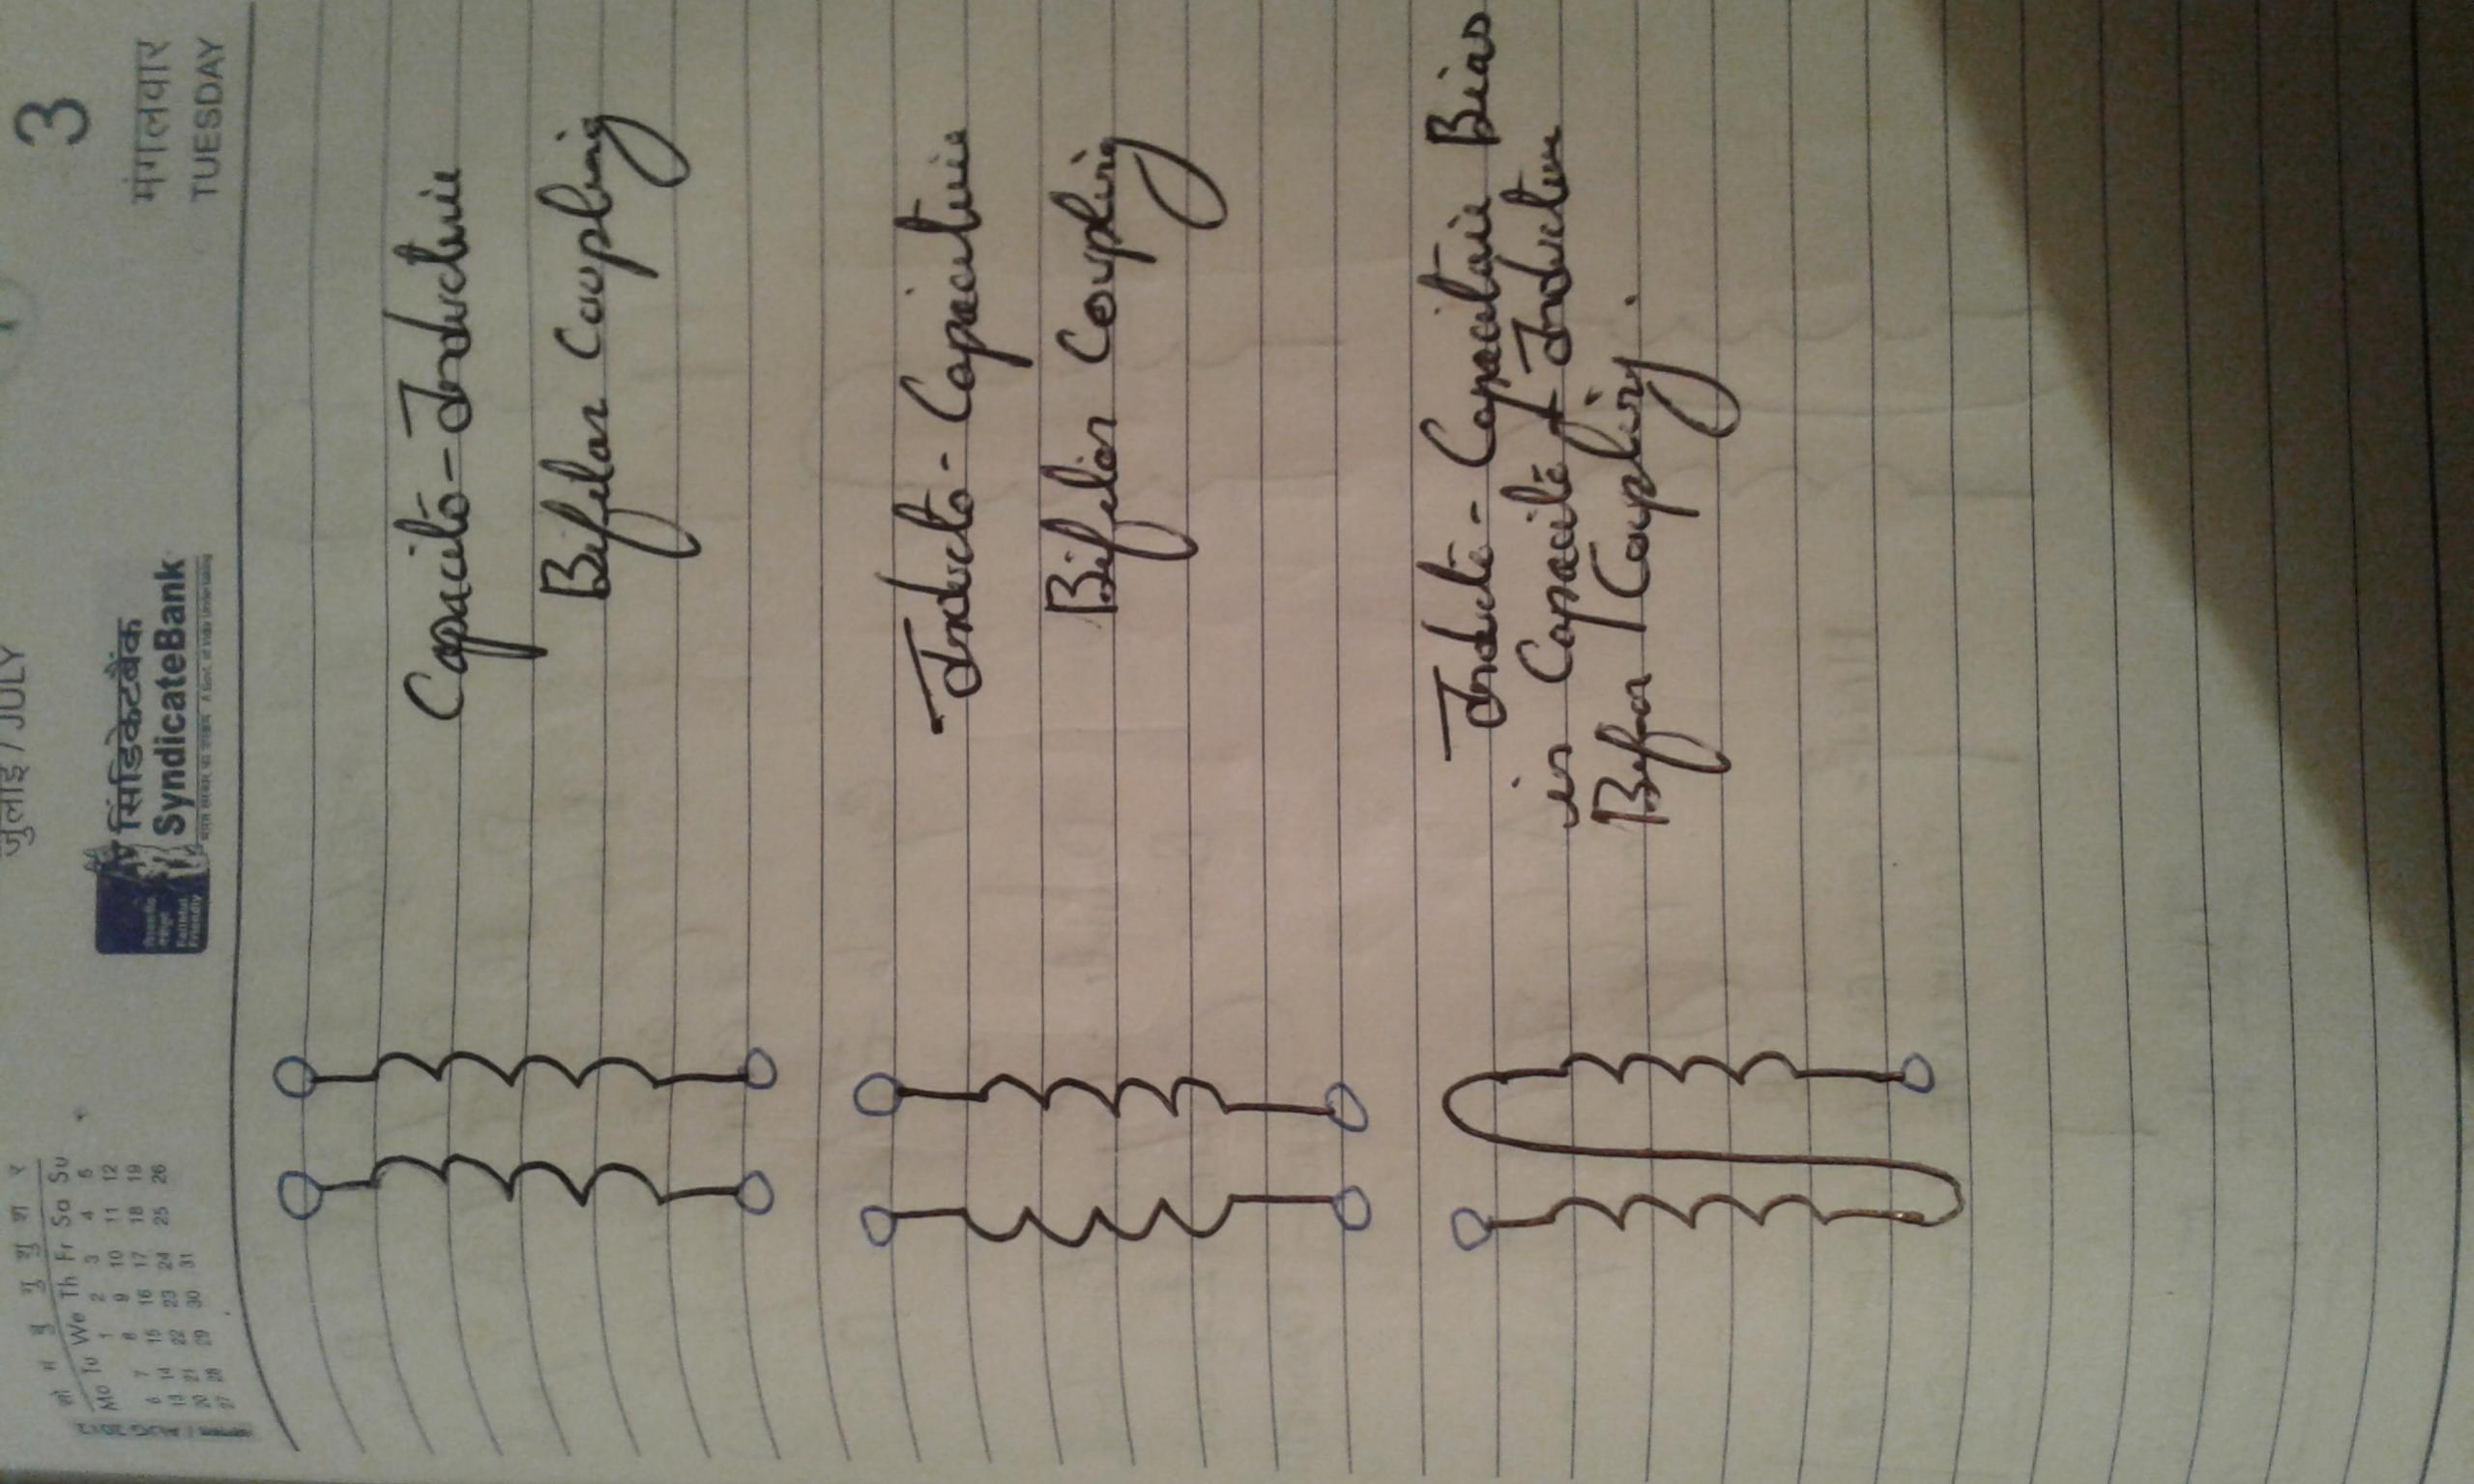 जुलाई / JULY
3
सिंडिकेटबैंक
SyndicateBank
Faithful
Friendly
मंगलवार
TUESDAY
Mo Tu We Th Fr Sa Su
1 2 3 4 5
6 7 8 9 10 11 12
13 14 15 16 17 18 19
20 21 22 23 24 25 26
27 28 29 30 31
Capacito-Inductive
Bifilar Coupling
Inducto-Capacitive
Bifilar Coupling
Inducto-Capacitive Bias
in Capacito-Inductive
Bifilar Coupling.